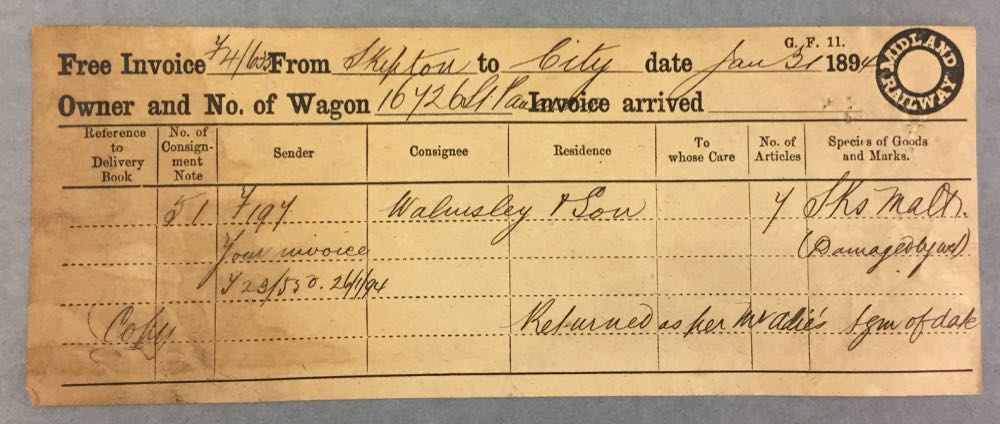 G. F. 11.
Free Invoice From Skipton to City date Jan 31 1894
MIDLAND RAILWAY
Owner and No. of Wagon 16726 St Pancras Invoice arrived
Reference to Delivery Book No. of Consignment Note Sender Consignee Residence To whose Care No. of Articles Species of Goods and Marks.
51 F197 Walmsley & Son 7 Sks Malt.
Your invoice (Damaged by wet)
F23/550. 26/1/94
Copy Returned as per Mr Adie's tgm of date